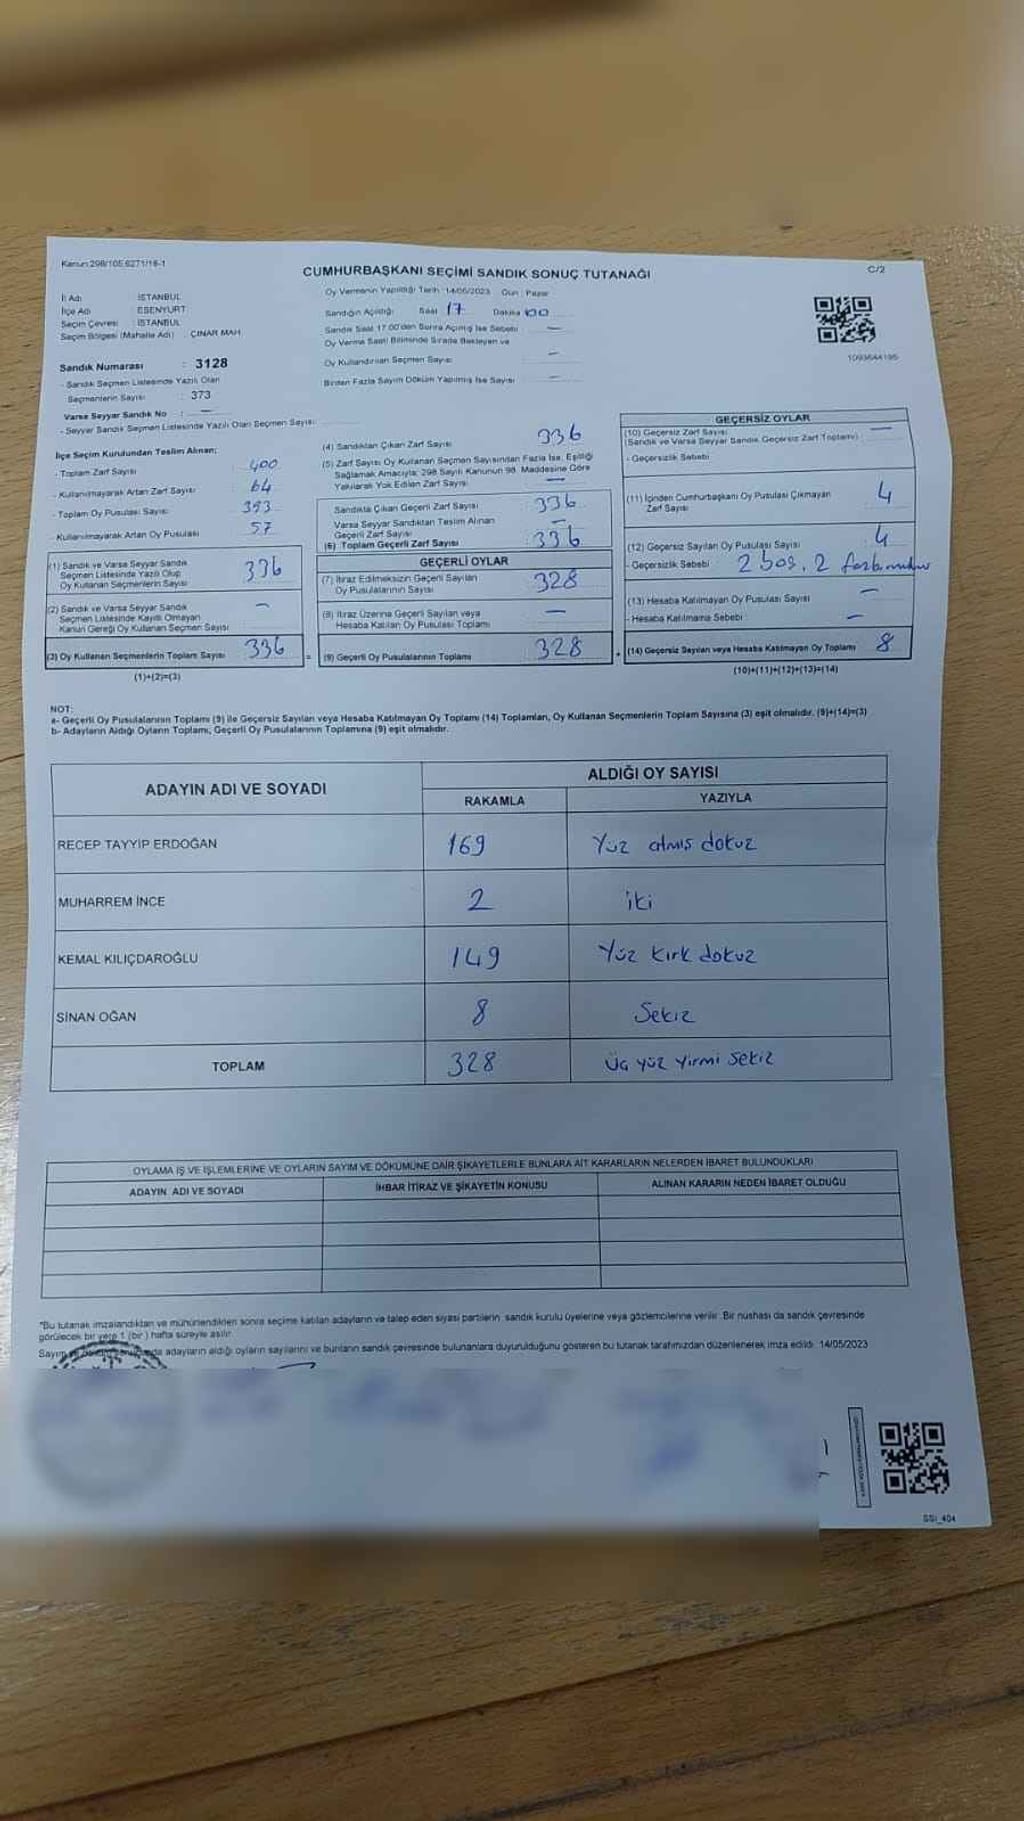 Kanun:298/105,6271/16-1
CUMHURBAŞKANI SEÇİMİ SANDIK SONUÇ TUTANAĞI
C/2
İl Adı : İSTANBUL
İlçe Adı : ESENYURT
Seçim Çevresi : İSTANBUL
Seçim Bölgesi (Mahalle Adı) : ÇINAR MAH.
Sandık Numarası : 3128
- Sandık Seçmen Listesinde Yazılı Olan
Seçmenlerin Sayısı : 373
Varsa Seyyar Sandık No : —
- Seyyar Sandık Seçmen Listesinde Yazılı Olan Seçmen Sayısı:
Oy Vermenin Yapıldığı Tarih : 14/05/2023 Gün : Pazar
Sandığın Açıldığı: Saat 17 Dakika 00
Sandık Saat 17:00'den Sonra Açılmış İse Sebebi —
Oy Verme Saati Bitiminde Sırada Bekleyen ve
Oy Kullandırılan Seçmen Sayısı —
Birden Fazla Sayım Döküm Yapılmış İse Sayısı —
1093644195
İlçe Seçim Kurulundan Teslim Alınan;
- Toplam Zarf Sayısı 400
- Kullanılmayarak Artan Zarf Sayısı 64
- Toplam Oy Pusulası Sayısı 393
- Kullanılmayarak Artan Oy Pusulası 57
(1) Sandık ve Varsa Seyyar Sandık
Seçmen Listesinde Yazılı Olup
Oy Kullanan Seçmenlerin Sayısı 336
(2) Sandık ve Varsa Seyyar Sandık
Seçmen Listesinde Kayıtlı Olmayan
Kanun Gereği Oy Kullanan Seçmen Sayısı —
(3) Oy Kullanan Seçmenlerin Toplam Sayısı 336
(1)+(2)=(3)
(4) Sandıktan Çıkan Zarf Sayısı 336
(5) Zarf Sayısı Oy Kullanan Seçmen Sayısından Fazla İse, Eşitliği
Sağlamak Amacıyla; 298 Sayılı Kanunun 98. Maddesine Göre
Yakılarak Yok Edilen Zarf Sayısı —
Sandıkta Çıkan Geçerli Zarf Sayısı 336
Varsa Seyyar Sandıktan Teslim Alınan
Geçerli Zarf Sayısı —
(6) Toplam Geçerli Zarf Sayısı 336
GEÇERLİ OYLAR
(7) İtiraz Edilmeksizin Geçerli Sayılan
Oy Pusulalarının Sayısı 328
(8) İtiraz Üzerine Geçerli Sayılan veya
Hesaba Katılan Oy Pusulası Toplamı —
(9) Geçerli Oy Pusulalarının Toplamı 328
GEÇERSİZ OYLAR
(10) Geçersiz Zarf Sayısı
(Sandık ve Varsa Seyyar Sandık Geçersiz Zarf Toplamı) —
- Geçersizlik Sebebi
(11) İçinden Cumhurbaşkanı Oy Pusulası Çıkmayan
Zarf Sayısı 4
(12) Geçersiz Sayılan Oy Pusulası Sayısı 4
- Geçersizlik Sebebi 2 boş, 2 fazla
(13) Hesaba Katılmayan Oy Pusulası Sayısı —
- Hesaba Katılmama Sebebi : —
(14) Geçersiz Sayılan veya Hesaba Katılmayan Oy Toplamı 8
(10)+(11)+(12)+(13)=(14)
NOT:
a- Geçerli Oy Pusulalarının Toplamı (9) ile Geçersiz Sayılan veya Hesaba Katılmayan Oy Toplamı (14) Toplamları, Oy Kullanan Seçmenlerin Toplam Sayısına (3) eşit olmalıdır. (9)+(14)=(3)
b- Adayların Aldığı Oyların Toplamı, Geçerli Oy Pusulalarının Toplamına (9) eşit olmalıdır.
ADAYIN ADI VE SOYADI
ALDIĞI OY SAYISI
RAKAMLA YAZIYLA
RECEP TAYYİP ERDOĞAN 169 Yüz atmış dokuz
MUHARREM İNCE 2 iki
KEMAL KILIÇDAROĞLU 149 Yüz kırk dokuz
SİNAN OĞAN 8 Sekiz
TOPLAM 328 Üç yüz yirmi sekiz
OYLAMA İŞ VE İŞLEMLERİNE VE OYLARIN SAYIM VE DÖKÜMÜNE DAİR ŞİKAYETLERLE BUNLARA AİT KARARLARIN NELERDEN İBARET BULUNDUKLARI
ADAYIN ADI VE SOYADI İHBAR İTİRAZ VE ŞİKAYETİN KONUSU ALINAN KARARIN NEDEN İBARET OLDUĞU
"Bu tutanak imzalandıktan ve mühürlendikten sonra seçime katılan adayların ve talep eden siyasi partilerin sandık kurulu üyelerine veya gözlemcilerine verilir. Bir nüshası da sandık çevresinde
görülecek bir yere 1 (bir) hafta süreyle asılır.
adayların aldığı oyların sayılarını ve bunların sandık çevresinde bulunanlara duyurulduğunu gösteren bu tutanak tarafımızdan düzenlenerek imza edildi. 14/05/2023
SSI_404